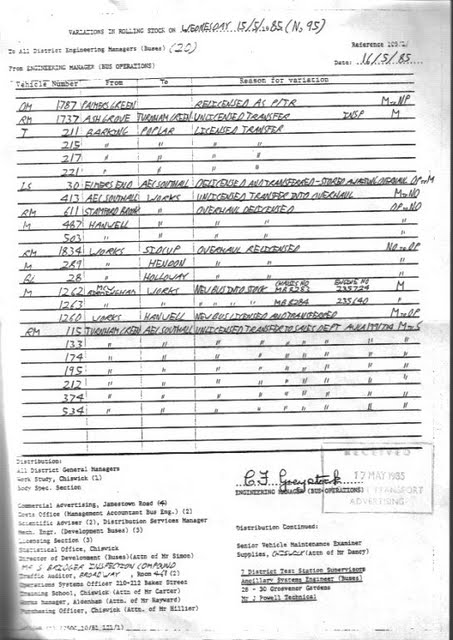 VARIATIONS IN ROLLING STOCK ON WEDNESDAY 15/5/1985 (No 95)
To All District Engineering Managers (Buses) (20)
Reference 109/1/
From ENGINEERING MANAGER (BUS OPERATIONS)
Date: 16/5/85
Vehicle Number From To Reason for variation
DM 1787 PALMERS GREEN RELICENSED AS P/TR M to NP
RM 1737 ASH GROVE TURNHAM GREEN UNLICENSED TRANSFER INSP M
T 211 BARKING POPLAR LICENSED TRANSFER
215 " " " "
217 " " " "
221 " " " "
LS 30 ELMERS END AEC SOUTHALL DELICENSED AND TRANSFERRED - STORED AWAITING OVERHAUL OP to M
413 AEC SOUTHALL WORKS UNLICENSED TRANSFER INTO OVERHAUL M to NO
RM 611 STAMFORD BROOK " OVERHAUL DELICENSED OP to NO
M 487 HANWELL " " " "
503 " " " " "
RM 1834 WORKS SIDCUP OVERHAUL RELICENSED NO to OP
M 289 " HENDON " " "
RL 28 " HOLLOWAY " " "
M 1262 MCW BIRMINGHAM WORKS NEW BUS INTO STOCK CHASSIS NO MB 8283 ENGINE NO 235724 M
1263 " " " " " " MB 8284 235140 "
1260 WORKS HANWELL NEW BUS LICENSED AND TRANSFERRED M to OP
RM 115 TURNHAM GREEN AEC SOUTHALL UNLICENSED TRANSFER TO SALES DEPT M to S
133 " " " " " " " "
174 " " " " " " " "
195 " " " " " " " "
212 " " " " " " " "
374 " " " " " " " "
534 " " " " " " " "
Distribution:
All District General Managers
Work Study, Chiswick (1)
Body Spec. Section
RECEIVED
17 MAY 1985
TRANSPORT
ADVERTISING
ENGINEERING MANAGER (BUS OPERATIONS)
Commercial advertising, Jamestown Road (4)
Costs Office (Management Accountant Bus Eng.) (2)
Scientific Adviser (2), Distribution Services Manager
Mech. Engr. (Development Buses) (3)
Licensing Section (3)
Statistical Office, Chiswick
Director of Development (Buses)(Attn of Mr Simon)
MR S BRIDGER INSPECTION COMPOUND
Traffic Auditor, BROADWAY, Room 467 (2)
Operations Systems Officer 110-112 Baker Street
Training School, Chiswick (Attn of Mr Carter)
Works Manager, Aldenham (Attn of Mr Rayward)
Purchasing Officer, Chiswick (Attn of Mr Hillier)
Distribution Continued:
Senior Vehicle Maintenance Examiner
Supplies, CHISWICK (Attn of Mr Dancy)
7 District Test Station Supervisors
Ancillary Systems Engineer (Buses)
28 - 30 Grosvenor Gardens
Mr J Powell Technical